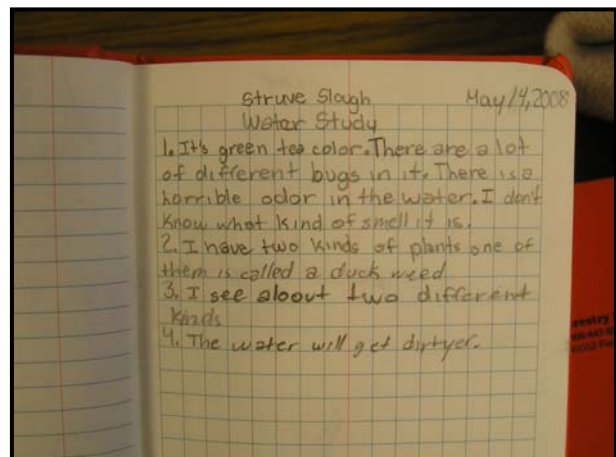 Struve Slough May 14, 2008
Water Study
1. It's green tea color. There are a lot
of different bugs in it. There is a
horrible odor in the water. I don't
know what kind of smell it is.
2. I have two kinds of plants one of
them is called a duck weed
3. I see aloout two different
kinds
4. The water will get dirtyer.